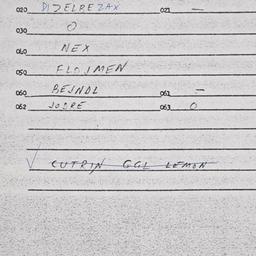 020 DIZELREZAX 021 —
030 O
040 NEX
050 FLOJMEN
060 BEJNDL 061 —
062 JODRE 063 O
√ CUTRIN GGL LEMON